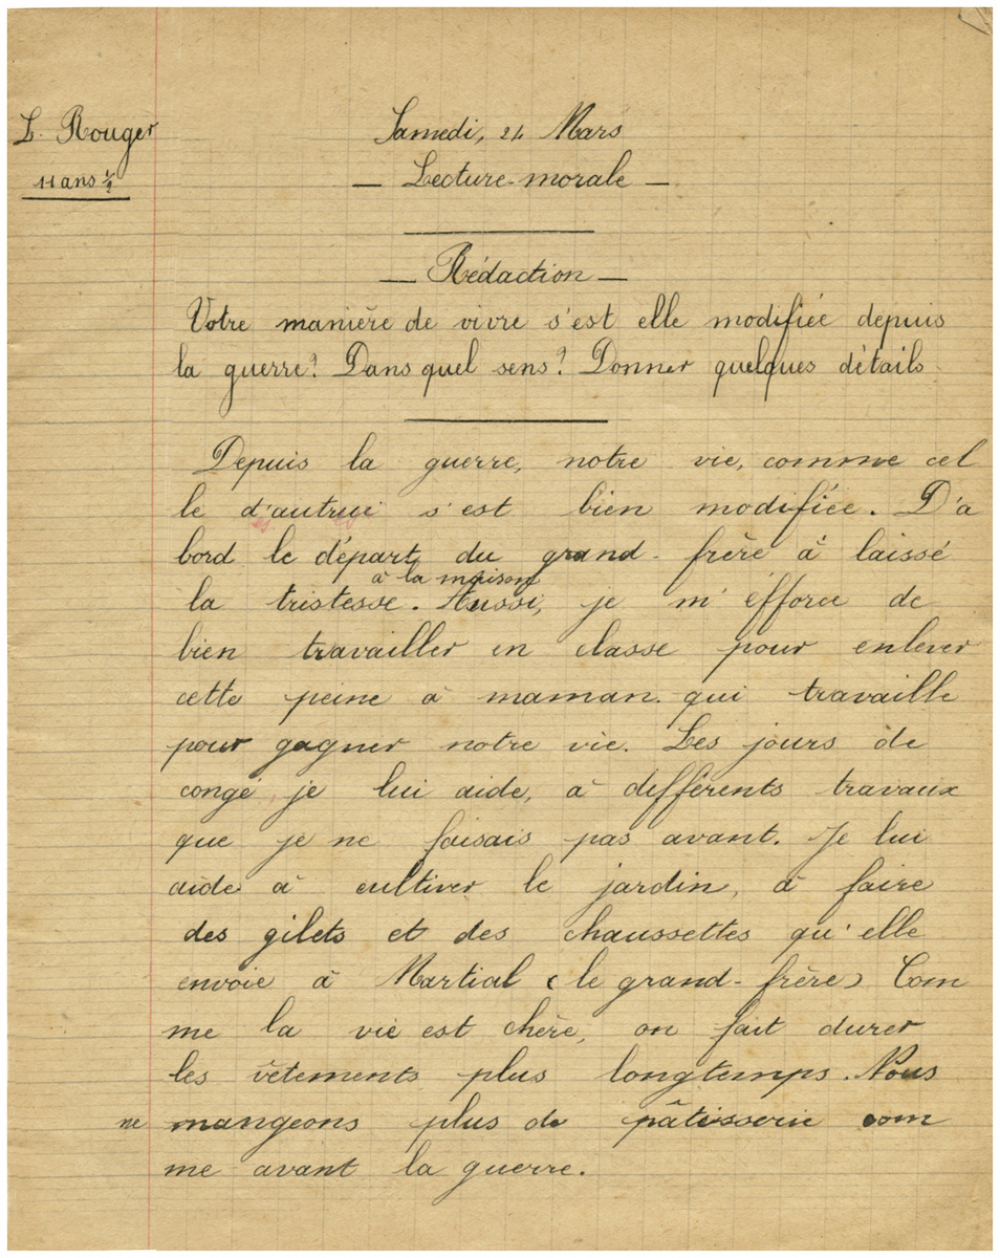 L. Rouger
11 ans ½
Samedi, 24 Mars
— Lecture-morale —
— Rédaction —
Votre manière de vivre s'est elle modifiée depuis
la guerre? Dans quel sens? Donner quelques détails.
Depuis la guerre, notre vie, comme cel
le d'autrui s'est bien modifiée. D'a
bord le départ du grand-frère à laissé
à la maison
la tristesse. Aussi, je m'éfforce de
bien travailler en classe pour enlever
cette peine à maman qui travaille
pour gagner notre vie. Les jours de
congé je lui aide, à différents travaux
que je ne faisais pas avant. Je lui
aide à cultiver le jardin, à faire
des gilets et des chaussettes qu'elle
envoie à Martial (le grand-frère) Com
me la vie est chère, on fait durer
les vêtements plus longtemps. Nous
ne mangeons plus de pâtisserie com
me avant la guerre.